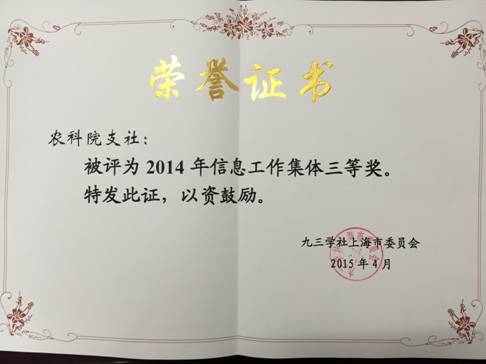 荣誉证书
农科院支社：
被评为 2014 年信息工作集体三等奖。
特发此证，以资鼓励。
九三学社上海市委员会
2015 年 4 月